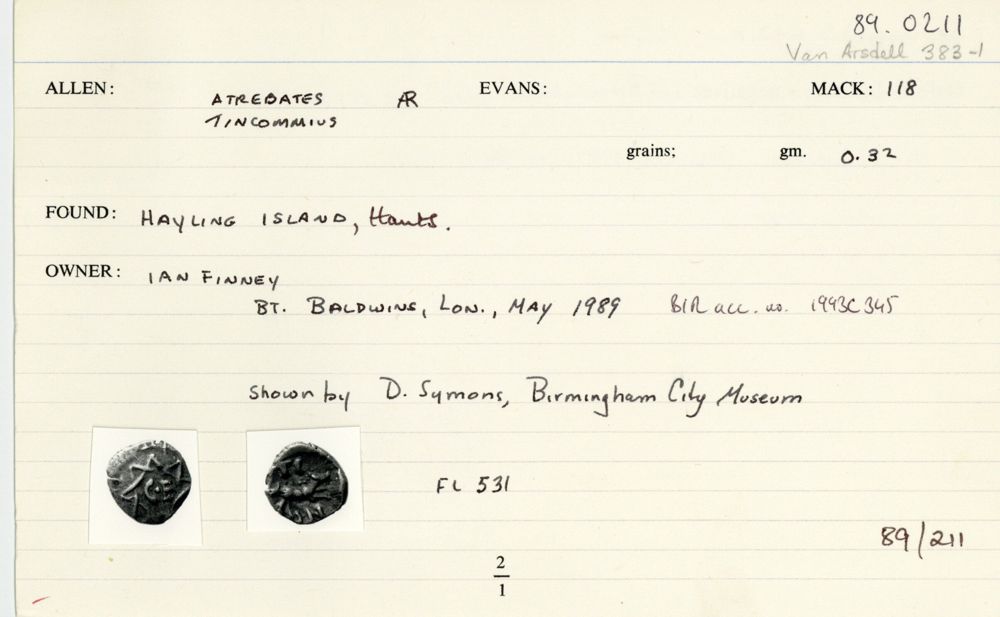 89.0211
Van Arsdell 383-1
ALLEN: ATREBATES AR EVANS: MACK: 118
TINCOMMIUS
grains; gm. 0.32
FOUND: HAYLING ISLAND, Hants.
OWNER: IAN FINNEY
BT. BALDWINS, LON., MAY 1989 BIR acc. no. 1993C345
Shown by D. Symons, Birmingham City Museum
FL 531
89/211
2
1